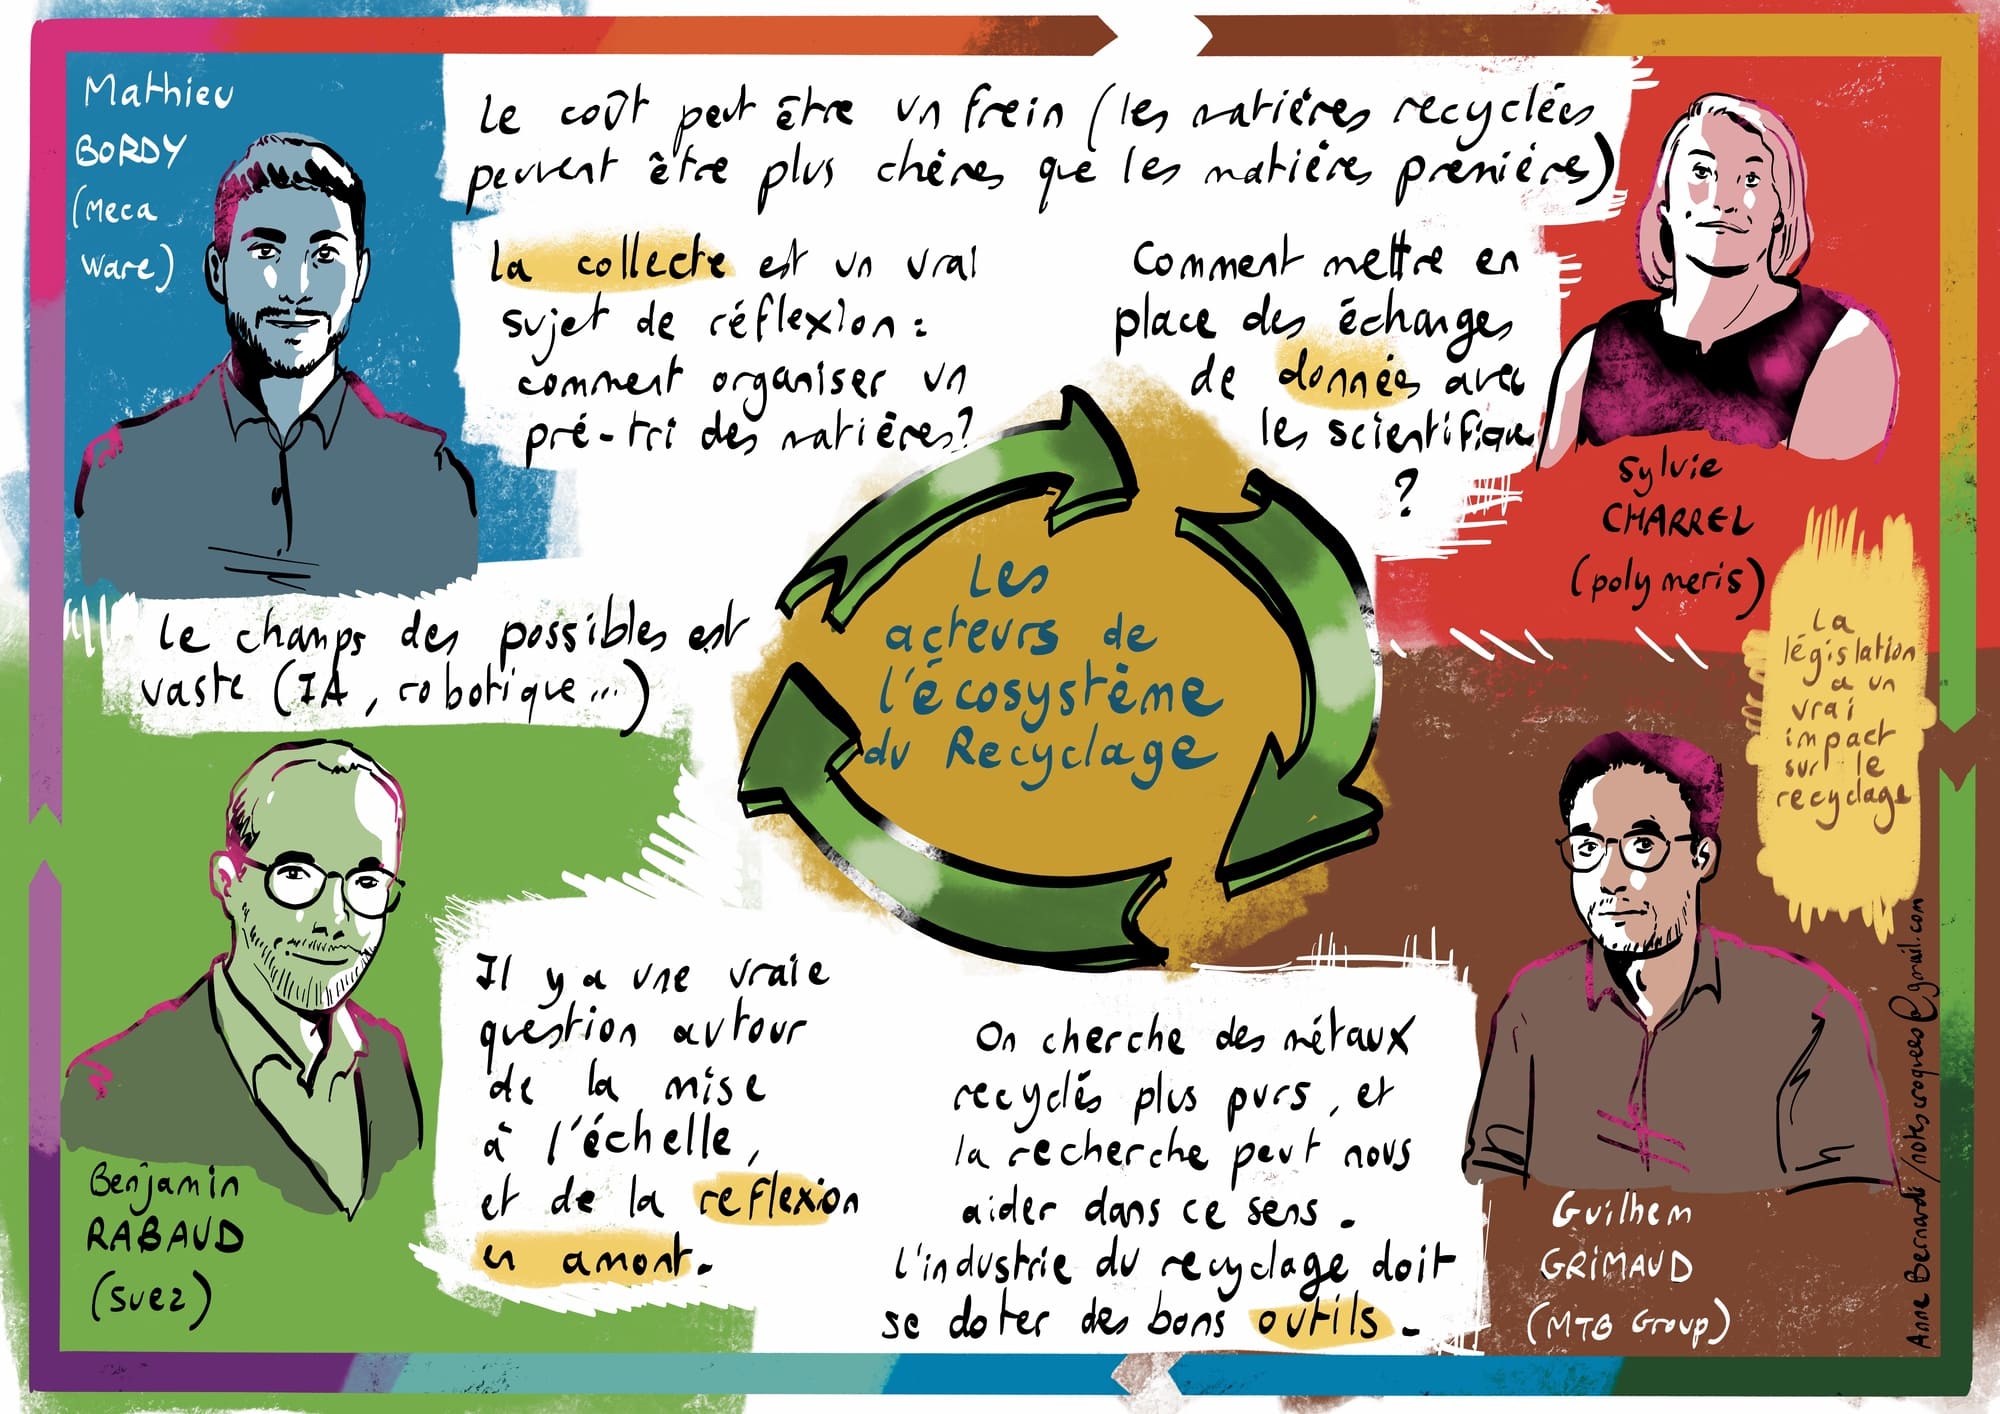 Mathieu
BORDY
(Meca
Ware)
Le coût peut être un frein (les matières recyclées
peuvent être plus chères que les matières premières)
La collecte est un vrai
sujet de réflexion :
comment organiser un
pré-tri des matières ?
Comment mettre en
place des échanges
de données avec
les scientifique
?
Sylvie
CHARREL
(polymeris)
Le champs des possibles est
vaste (IA, robotique...)
Les
acteurs de
l'écosystème
du Recyclage
La
législation
a un
vrai
impact
sur le
recyclage
Benjamin
RABAUD
(Suez)
Il y a une vraie
question autour
de la mise
à l'échelle,
et de la reflexion
en amont.
On cherche des métaux
recyclés plus purs, et
la recherche peut nous
aider dans ce sens.
L'industrie du recyclage doit
se doter des bons outils.
Guilhem
GRIMAUD
(MTB Group)
Anne Bernardi/notescroquees@gmail.com